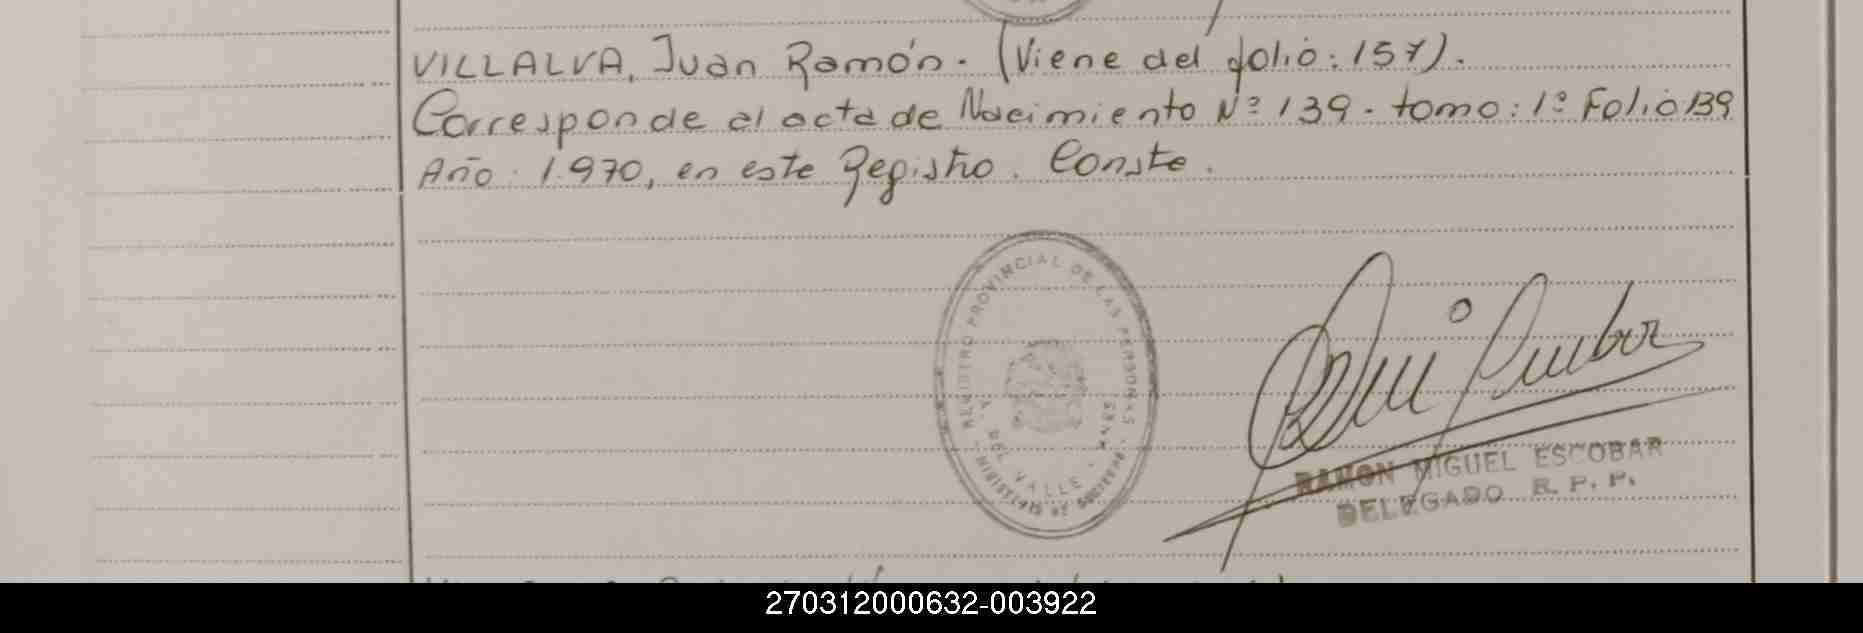 VILLALVA, Juan Ramón. (Viene del folio: 157).
Corresponde al acta de Nacimiento Nº 139 - tomo: 1º Folio 139
Año 1.970, en este Registro. Conste.
REGISTRO PROVINCIAL DE LAS PERSONAS
A. DEL VALLE
RAMON MIGUEL ESCOBAR
DELEGADO R. P. P.
270312000632-003922